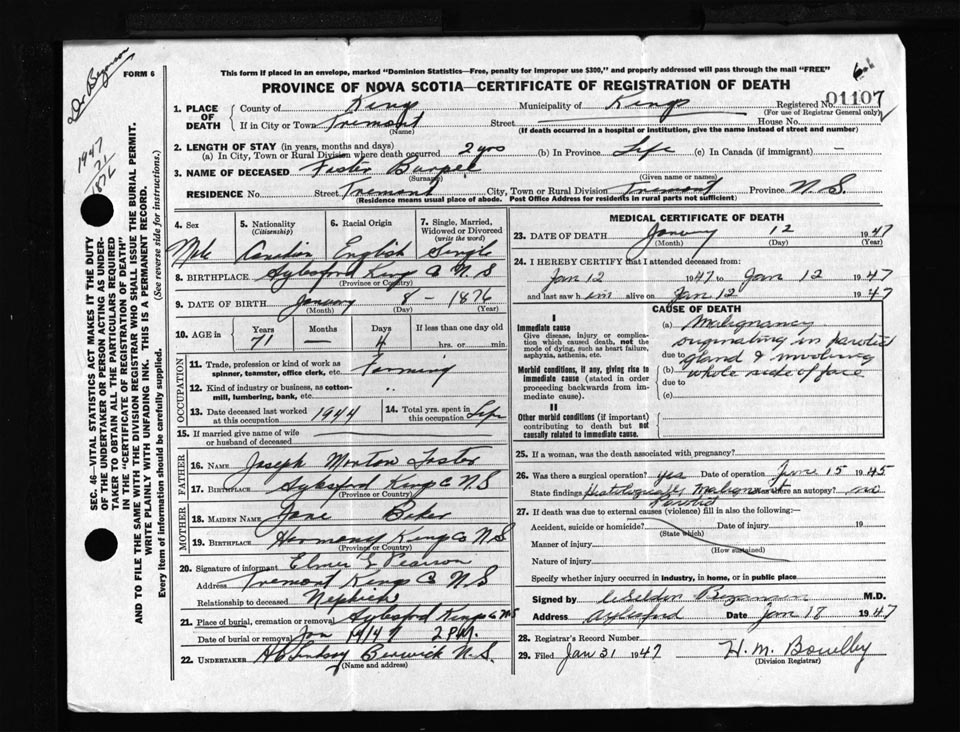 Dr Bezanson
FORM 6
This form if placed in an envelope, marked "Dominion Statistics—Free, penalty for improper use $300," and properly addressed will pass through the mail "FREE"
PROVINCE OF NOVA SCOTIA—CERTIFICATE OF REGISTRATION OF DEATH
1947
71
1876
SEC. 46—VITAL STATISTICS ACT MAKES IT THE DUTY
OF THE UNDERTAKER OR PERSON ACTING AS UNDER-
TAKER TO OBTAIN ALL THE PARTICULARS REQUIRED
IN THE "CERTIFICATE OF REGISTRATION OF DEATH"
AND TO FILE THE SAME WITH THE DIVISION REGISTRAR WHO SHALL ISSUE THE BURIAL PERMIT.
WRITE PLAINLY WITH UNFADING INK. THIS IS A PERMANENT RECORD.
Every item of information should be carefully supplied. (See reverse side for instructions.)
1. PLACE OF DEATH County of Kings Municipality of Kings Registered No. 01107
(For use of Registrar General only)
If in City or Town Tremont Street House No.
(Name) (If death occurred in a hospital or institution, give the name instead of street and number)
2. LENGTH OF STAY (in years, months and days)
(a) In City, Town or Rural Division where death occurred 2 yrs (b) In Province Life (c) In Canada (if immigrant) —
3. NAME OF DECEASED Foster Burpee
(Surname) (Given name or names)
RESIDENCE No. Street Tremont City, Town or Rural Division Tremont Province N.S.
(Residence means usual place of abode. Post Office Address for residents in rural parts not sufficient)
4. Sex 5. Nationality (Citizenship) 6. Racial Origin 7. Single, Married, Widowed or Divorced (write the word)
Male Canadian English Single
8. BIRTHPLACE Aylesford Kings Co N S
(Province or County)
9. DATE OF BIRTH January 8 – 1876
(Month) (Day) (Year)
10. AGE in Years Months Days If less than one day old
71 — 4 hrs. or min.
OCCUPATION
11. Trade, profession or kind of work as spinner, teamster, office clerk, etc. Farming
12. Kind of industry or business, as cotton-mill, lumbering, bank, etc. "
13. Date deceased last worked at this occupation 1944 14. Total yrs. spent in this occupation Life
15. If married give name of wife or husband of deceased
FATHER
16. NAME Joseph Morton Foster
17. BIRTHPLACE Aylesford Kings Co N.S
(Province or County)
MOTHER
18. MAIDEN NAME Jane Baker
19. BIRTHPLACE Harmony Kings Co N S
(Province or County)
20. Signature of informant Elmer E Pearson
Address Tremont Kings Co N S
Relationship to deceased Nephew
21. Place of burial, cremation or removal Aylesford Kings Co N S
Date of burial or removal Jan 1947 2 P.M.
22. UNDERTAKER Berwick N.S.
(Name and address)
MEDICAL CERTIFICATE OF DEATH
23. DATE OF DEATH January 12 1947
(Month) (Day) (Year)
24. I HEREBY CERTIFY that I attended deceased from:
Jan 12 1947 to Jan 12 1947
and last saw him alive on Jan 12 1947
CAUSE OF DEATH
I
Immediate cause
Give disease, injury or complication which caused death, not the mode of dying, such as heart failure, asphyxia, asthenia, etc.
Morbid conditions, if any, giving rise to immediate cause (stated in order proceeding backwards from immediate cause).
II
Other morbid conditions (if important) contributing to death but not causally related to immediate cause.
(a) Malignancy
originating in parotid
due to gland & involving
(b) whole side of face
due to
(c)
25. If a woman, was the death associated with pregnancy?
26. Was there a surgical operation? yes Date of operation June 15 1945
State findings Histologically Malignant Parotid Was there an autopsy? no
27. If death was due to external causes (violence) fill in also the following:—
Accident, suicide or homicide? Date of injury 19
(State which)
Manner of injury
(How sustained)
Nature of injury
Specify whether injury occurred in industry, in home, or in public place
Signed by Weldon Bezanson M.D.
Address Aylesford Date Jan 18 1947
28. Registrar's Record Number
29. Filed Jan 31 1947 H. M. Bowlby
(Division Registrar)